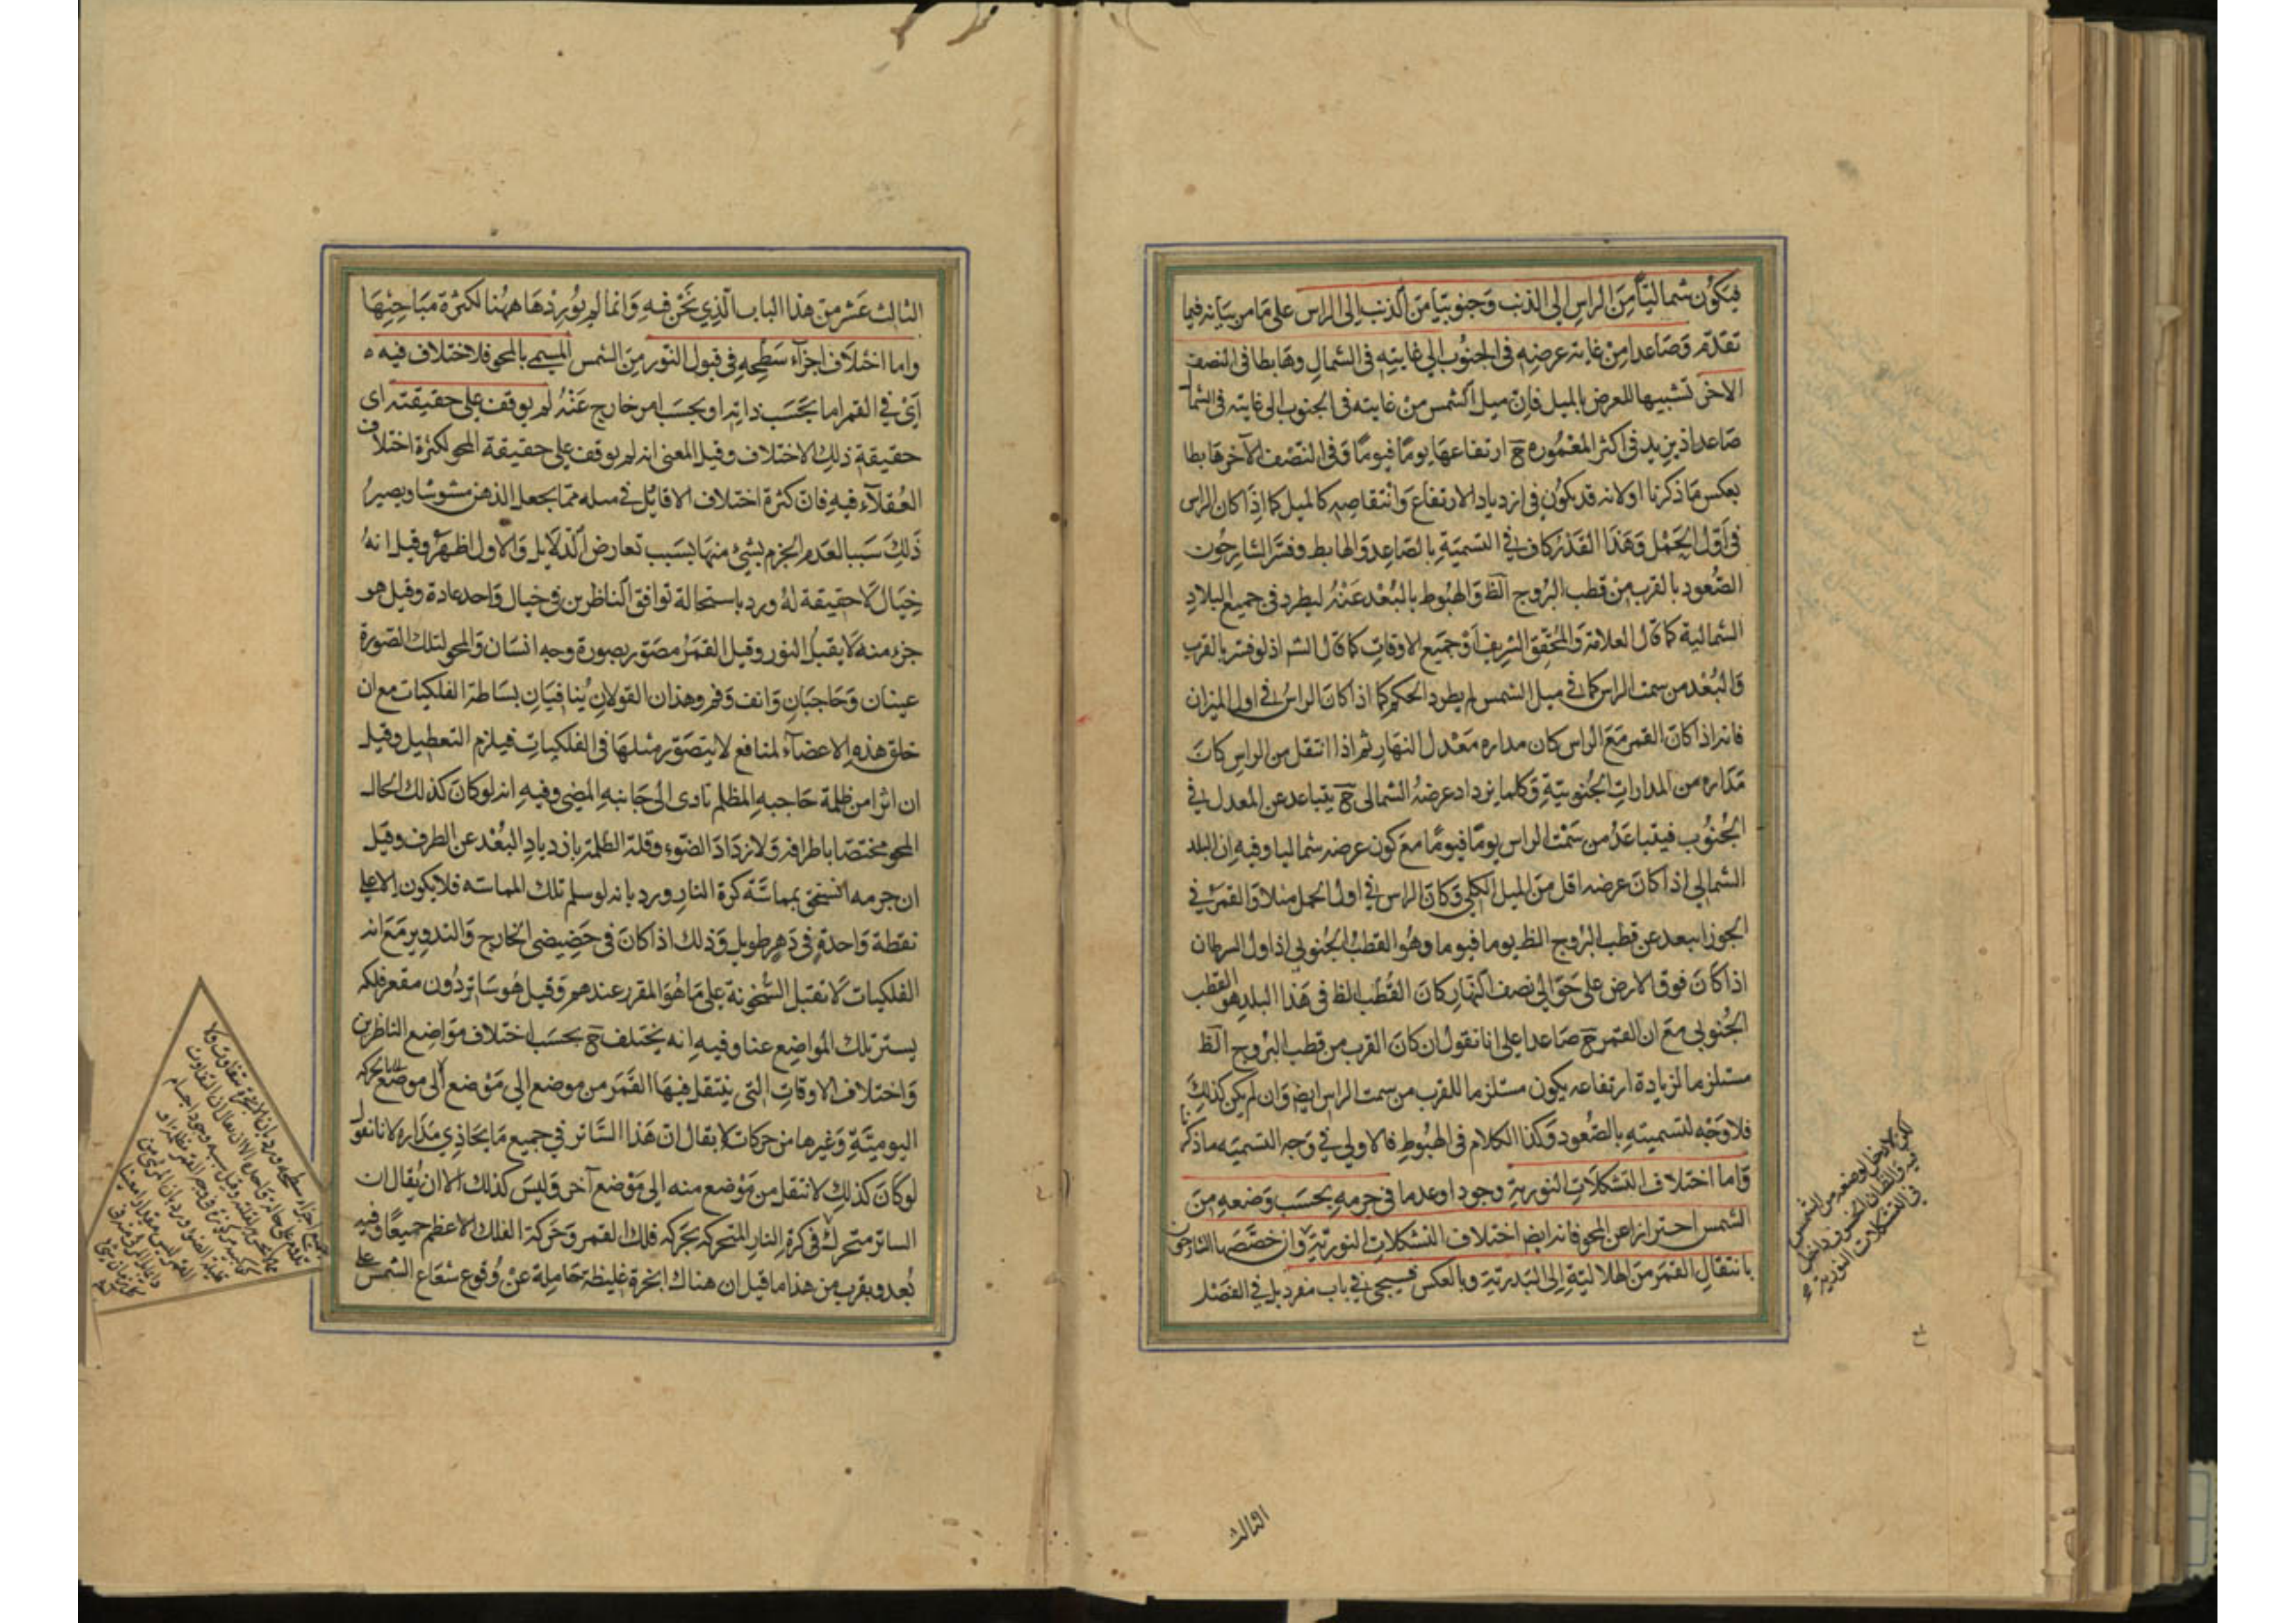 فيكون شماليا من الراس الى الذنب وجنوبيا من الذنب الى الراس على ما مر بيانه فيما
تقدم وصاعدا من غاية عرضه في الجنوب الى غايته في الشمال وهابطا في النصف
الاخر تشبيها للعرض بالميل فان ميل الشمس من غايته في الجنوب الى غايته في الشما
صاعد اذ يزيد في اكثر المعموره ح ارتفاعها يوما فيوما وفي النصف الآخر هابطا
بعكس ما ذكرنا اولانه قد يكون في ازدياد الارتفاع وانتقاصه كالميل كما اذا كان الراس
في اول الحمل وهذا القدر كاف في التسمية بالصاعد والهابط وفسر الشارحون
الصعود بالقرب من قطب البروج الظ والهبوط بالبعد عنه ليطرد في جميع البلاد
الشمالية كما قال العلامة والمحقق الشريف او جميع الاوقات كما قال الشم اذ لو فسر بالقرب
والبعد من سمت الراس كما في ميل الشمس لم يطرد الحكم كما اذا كان الراس في اول الميزان
فانه اذا كان القمر مع الراس كان مداره معدل النهار ثم اذا انتقل من الراس كان
مداره من المدارات الجنوبية وكلما يزداد عرضه الشمالي ح يتباعد عن المعدل في
الجنوب فيتباعد من سمت الراس يوما فيوما مع كون عرضه شماليا وفيه ان البلد
الشمالي اذا كان عرضه اقل من الميل الكلي وكان الراس في اول الحمل مثلا والقمر في
الجوزا يبعد عن قطب البروج الظ يوما فيوما وهو القطب الجنوبي اذ اول السرطان
اذا كان فوق الارض على حوالي نصف النهار كان القطب الظ في هذا البلد هو القطب
الجنوبي مع ان القمر ح صاعد على انا نقول ان كان القرب من قطب البروج الظ
مستلزما لزيادة ارتفاعه يكون مستلزما للقرب من سمت الراس ايض وان لم يكن كذلك
فلا وجه لتسميته بالصعود وكذا الكلام في الهبوط فالاولي في وجه التسميه ما ذكرنا
واما اختلاف التشكلات النورية وجودا وعدما في جرمه بحسب وضعه من
الشمس احترازا عن المحو فانه ايض اختلاف التشكلات النورية وان خصصها الشارحون
بانتقال القمر من الهلالية الى البدرية وبالعكس فسيجئ في باب مفرد بل في الفصل
لكن لا دخل لوضعه من الشمس
فيه والظان الخسوف داخل
في التشكلات النورية
الثالث
الثالث عشر من هذا الباب الذي نحن فيه وانما لم يوردها ههنا لكثرة مباحثها
واما اختلاف اجزاء سطحه في قبول النور من الشمس المسمى بالمحو فلاختلاف فيه
اي في القمر اما بحسب ذاته او بحسب امر خارج عنه لم يوقف على حقيقته اى
حقيقة ذلك الاختلاف وقيل المعنى انه لم يوقف على حقيقة المحو لكثرة اختلاف
العقلاء فيه فان كثرة اختلاف الاقائل في مسله مما يجعل الذهن مشوشا ويصير
ذلك سببا لعدم الجزم بشئ منها بسبب تعارض الدلايل والاول اظهر وقيل انه
خيال لا حقيقة له ورد باستحالة توافق الناظرين في خيال واحد عادة وقيل هو
جزء منه لا يقبل النور وقيل القمر مصور بصورة وجه انسان والمحو لتلك الصورة
عينان وحاجبان وانف وفم وهذان القولان ينافيان بساطة الفلكيات مع ان
خلق هذه الاعضاء لمنافع لا يتصور مثلها في الفلكيات فيلزم التعطيل وقيل
ان اثرا من ظلمة حاجبه المظلم تادى الى جانبه المضي وفيه انه لو كان كذلك الحال
المحو مختصا باطرافه ولازداد الضوء وقلة الظلمة بازدياد البعد عن الطرف وقيل
ان جرمه انسحق بمماسة كرة النار ورد بانه لو سلم تلك المماسه فلا يكون الا على
نقطة واحدة في دهر طويل وذلك اذا كان في حضيضي الخارج والتدوير مع انه
الفلكيات لا تقبل السخونة على ما هو المقرر عندهم وقيل هو ساتر دون مقعر فلكه
يستر تلك المواضع عنا وفيه انه يختلف ح بحسب اختلاف مواضع الناظرين
واختلاف الاوقات التي ينتقل فيها القمر من موضع الى موضع الى موضع بحركه
اليومية وغيرها من حركات لا يقال ان هذا الساتر في جميع ما يحاذي مداره لانا نقول
لو كان كذلك لا تنقل من موضع منه الى موضع آخر وليس كذلك الا ان يقال ان
الساتر متحرك في كرة النار المتحركه بحركه فلك القمر وحركة الفلك الاعظم جميعا وفيه
بعد ويقرب من هذا ما قيل ان هناك ابخرة غليظة حاملة عن وقوع شعاع الشمس على